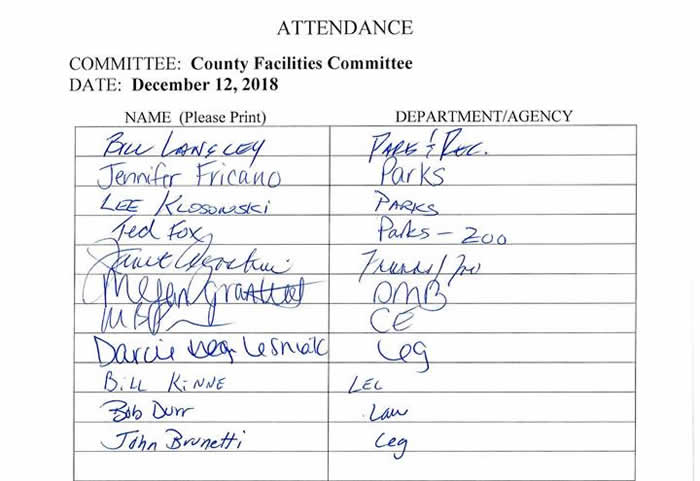 ATTENDANCE
COMMITTEE: County Facilities Committee
DATE: December 12, 2018
NAME (Please Print) DEPARTMENT/AGENCY
BILL LANGLEY PARK & REC.
Jennifer Fricano Parks
LEE KLOSOWSKI PARKS
Ted Fox Parks - ZOO
Janet
Megan OMB
CE
Darcie Lesniak Leg
BILL KINNE LEG
Bob Durr Law
John Brunetti Leg